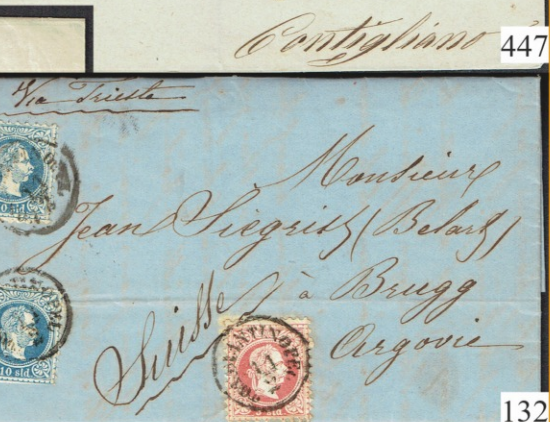 Contigliano
447
Via Trieste
Monsieur
Jean Siegrist (Belart)
à Brugg
Suisse
Argovie
CONSTANTINOPEL
10 sld
132